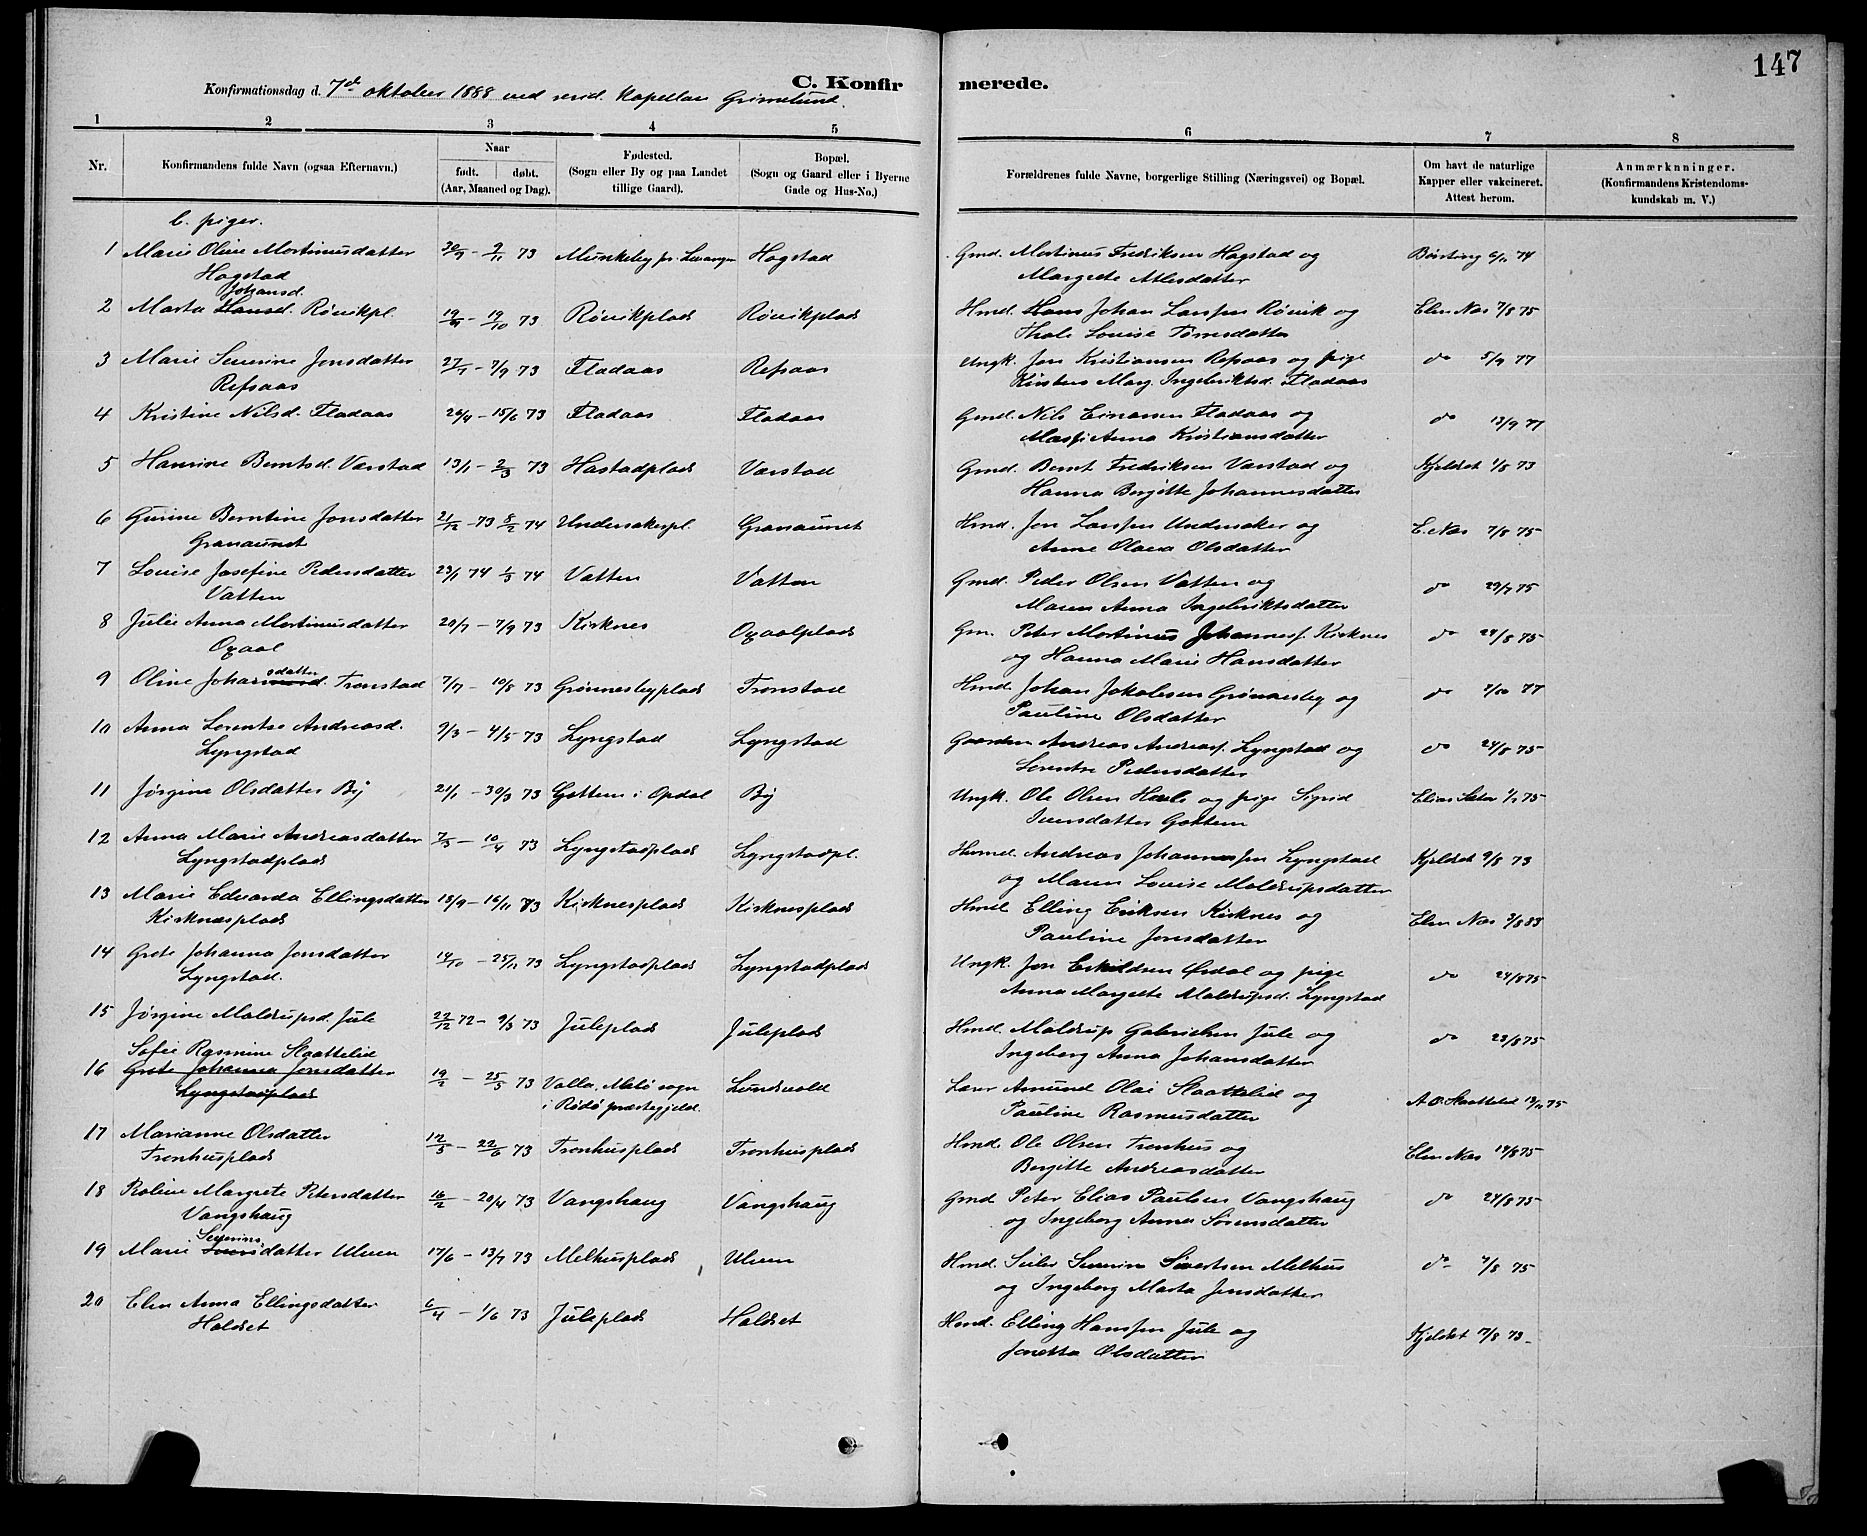 147
C. Konfirmerede.
Konfirmationsdag d. 7de oktober 1888 ved resid. Kapellan Grimelund.
1 2 3 4 5 6 7 8
Nr. Konfirmandens fulde Navn (ogsaa Efternavn.) Naar født. døbt. (Aar, Maaned og Dag). Fødested. (Sogn eller By og paa Landet tillige Gaard). Bopæl. (Sogn og Gaard eller i Byerne Gade og Hus-No.) Forældrenes fulde Navne, borgerlige Stilling (Næringsvei) og Bopæl. Om havt de naturlige Kapper eller vakcineret. Attest herom. Anmærknninger. (Konfirmandens Kristendomskundskab m. V.)
b. piger.
1 Marie Oline Mortinusdatter 30/9 - 9/11 73 Munkeby pr. Levanger Hogstad Gmd. Mortinus Fredriksen Hogstad og Børsting 6/11 74
Hogstad Margrete Atlesdatter
Johansd.
2 Marta Hansd. Røvikpl. 19/9 - 19/10 73 Røvikplads Røvikplads Hmd. Hans Johan Larssen Røvik og Elen Næs 7/8 75
Thale Louise Tørresdatter
3 Marie Severine Jonsdatter 27/7 - 7/9 73 Fladaas Refsaas Ungk. Jon Kristiansen Refsaas og pige do 5/9 77
Refsaas Kirsten Marg. Ingebriktsd. Fladaas
4 Kristine Nilsd. Fladaas 26/4 - 15/6 73 Fladaas Fladaas Gmd. Nils Einarsen Fladaas og do 13/9 77
Anna Kristiansdatter
5 Hanrine Berntsd. Værstad 13/1 - 2/3 73 Hastadplads Værstad Gmd. Bernt Fredriksen Værstad og Kjeldset 1/8 73
Hanna Bergitte Johannesdatter
6 Gurine Berntine Jonsdatter 21/12 - 73 8/2 74 Undersakerpl. Granaunet Hmd. Jon Larssen Undersaker og E. Næs 7/8 75
Granaunet Anne Olava Olsdatter
7 Louise Josefine Pedersdatter 23/1 74 1/3 74 Vatten Vatten Gmd. Peder Olsen Vatten og do 29/7 75
Vatten Maren Anna Ingebriktsdatter
8 Julie Anna Mortinusdatter 20/7 - 7/9 73 Kirknes Oxaalplads Gm. Peter Mortinus Johanness. Kirknes do 24/8 75
Oxaal og Hanna Marie Hansdatter
9 Oline Johansdatter Tronstad 7/7 - 10/8 73 Grønnesbyplads Tronstad Hmd. Johan Jakobsen Grønnesby og do 7/10 77
Pauline Olsdatter
10 Anna Lorentse Andreasd. 9/3 - 4/5 73 Lyngstad Lyngstad Gaardm. Andreas Andreass. Lyngstad og do 24/8 75
Lyngstad Lorentse Pedersdatter
11 Jørgine Olsdatter By 21/1 - 30/3 73 Gottem i Opdal By Ungk. Ole Olsen Hæls og pige Sigrid Elias Sæter 1/7 75
Iversdatter Gottem
12 Anna Marie Andreasdatter 7/3 - 10/4 73 Lyngstadplads Lyngstadpl. Husmd. Andreas Johannessen Lyngstad Kjeldset 9/8 73
Lyngstadplads og Maren Louise Moldrupsdatter
13 Marie Edvarda Ellingsdatter 18/9 - 16/11 73 Kirknesplads Kirknesplads Hmd. Elling Eriksen Kirknes og Elen Næs 3/8 83
Kirknæsplads Pauline Jonsdatter
14 Grete Johanna Jonsdatter 14/10 - 25/11 73 Lyngstadplads Lyngstadplads Ungk. Jon Eskildsen Ørdal og pige do 24/8 75
Lyngstad. Anna Margrethe Moldrupsd. Lyngstad
15 Jørgine Moldrupsd. Jule 22/12 72 - 9/3 73 Juleplads Juleplads Hmd. Moldrup Gabrielsen Jule og do 23/8 75
Ingeborg Anna Johansdatter
Sofie Rasmine Slaattelid
16 Grete Johanna Jonsdatter 19/2 - 25/5 73 Valla, Melø sogn Lundvold Lærer Amund Olai Slaattelid og A.O. Slaattelid 13/11 75
Lyngstadplads i Rødø præstegjeld. Pauline Rasmusdatter
17 Marianne Olsdatter 12/5 - 22/6 73 Tronhusplads Tronhusplads Hmd. Ole Olsen Tronhus og Elen Næs 14/8 75
Tronhusplads Bergitte Andreasdatter
18 Roline Margrete Petersdatter 16/2 - 20/4 73 Vangshaug Vangshaug Gmd. Peter Elias Paulsen Vangshaug do 24/8 75
Vangshaug og Ingeborg Anna Sørensdatter
Severins
19 Marie datter Ulven 17/6 - 13/7 73 Melhusplads Ulven Hmd. Severin Sivertsen Melhus do 7/8 75
og Ingeborg Marta Jensdatter
20 Elen Anna Ellingsdatter 6/4 - 1/6 73 Juleplads Holdset Hmd. Elling Hanssen Jule og Kjeldset 17/8 73
Holdset Jonetta Olsdatter